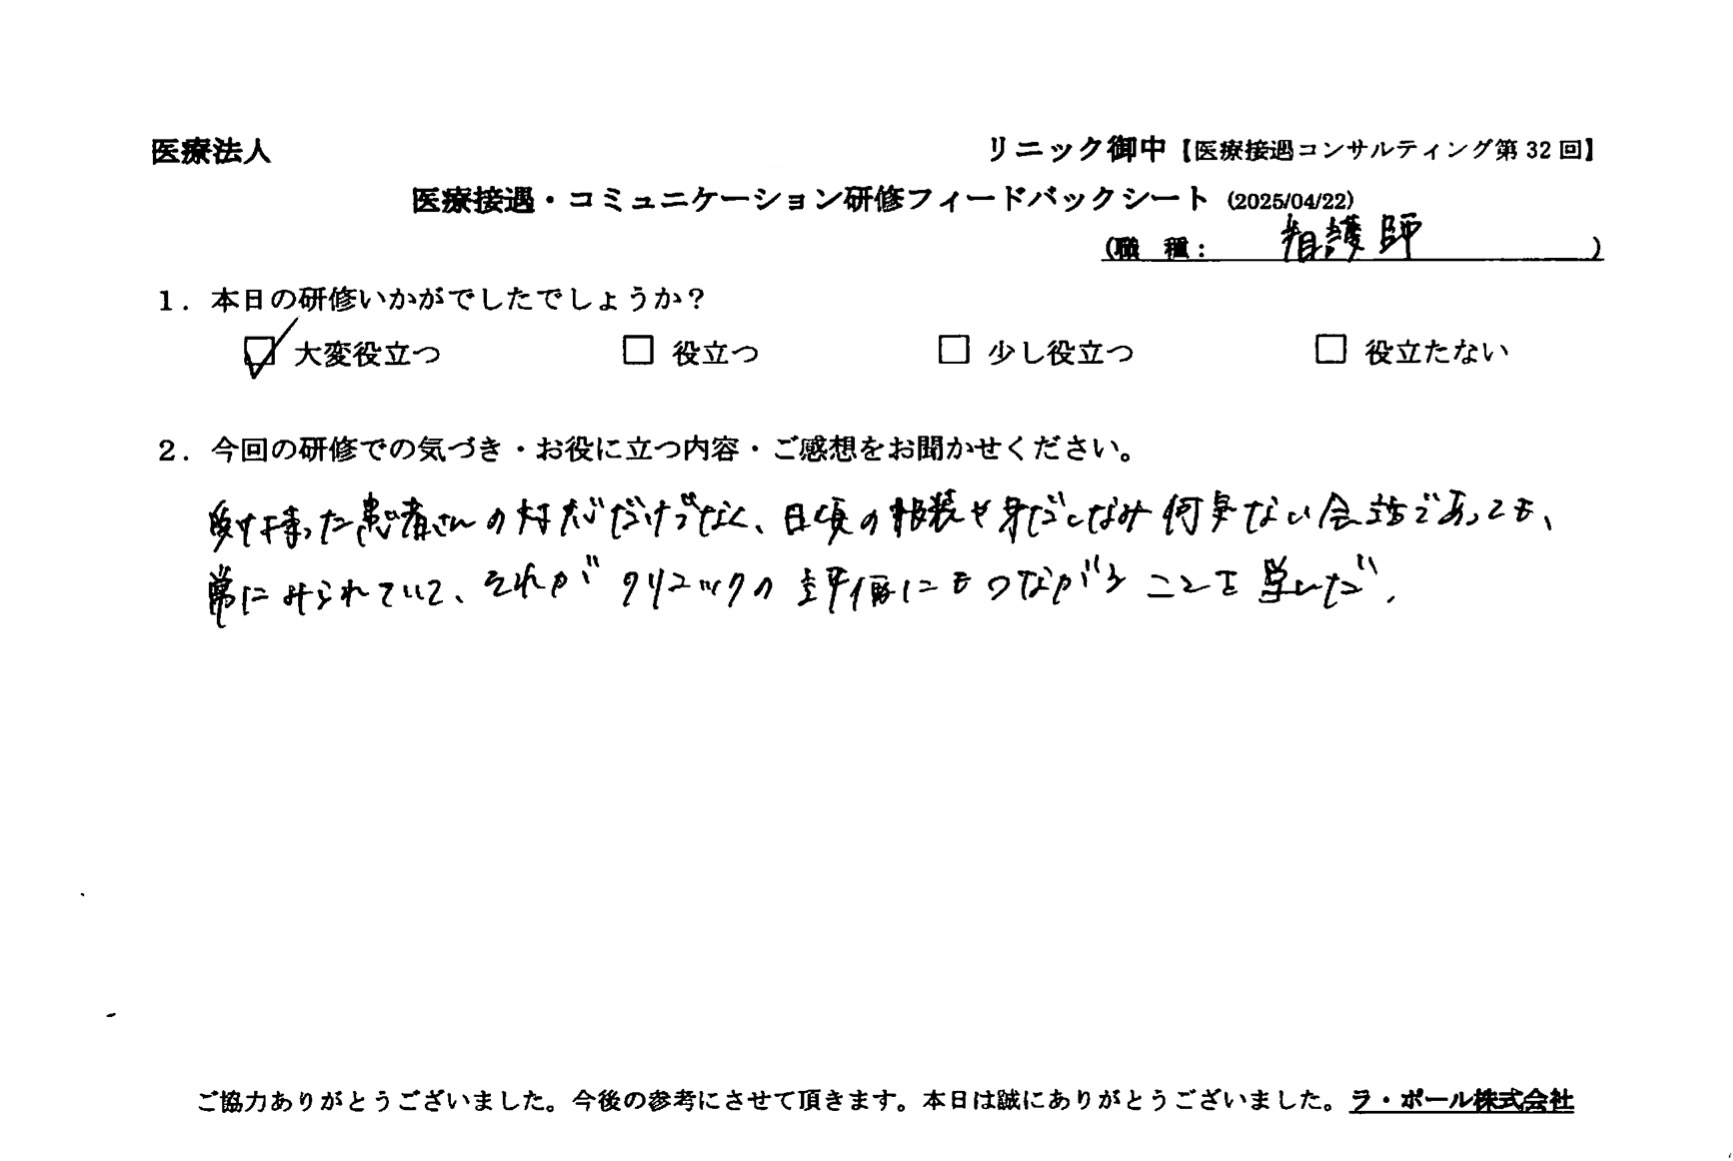 医療法人 リニック御中【医療接遇コンサルティング第 32 回】
医療接遇・コミュニケーション研修フィードバックシート (2025/04/22)
(職 種: 看護師 )
1. 本日の研修いかがでしたでしょうか?
☑ 大変役立つ □ 役立つ □ 少し役立つ □ 役立たない
2. 今回の研修での気づき・お役に立つ内容・ご感想をお聞かせください。
受け持った患者さんの対応だけでなく、日頃の服装や身だしなみ何気ない会話であっても、
常にみられていて、それがクリニックの評価にもつながることを学んだ。
ご協力ありがとうございました。今後の参考にさせて頂きます。本日は誠にありがとうございました。ラ・ポール株式会社